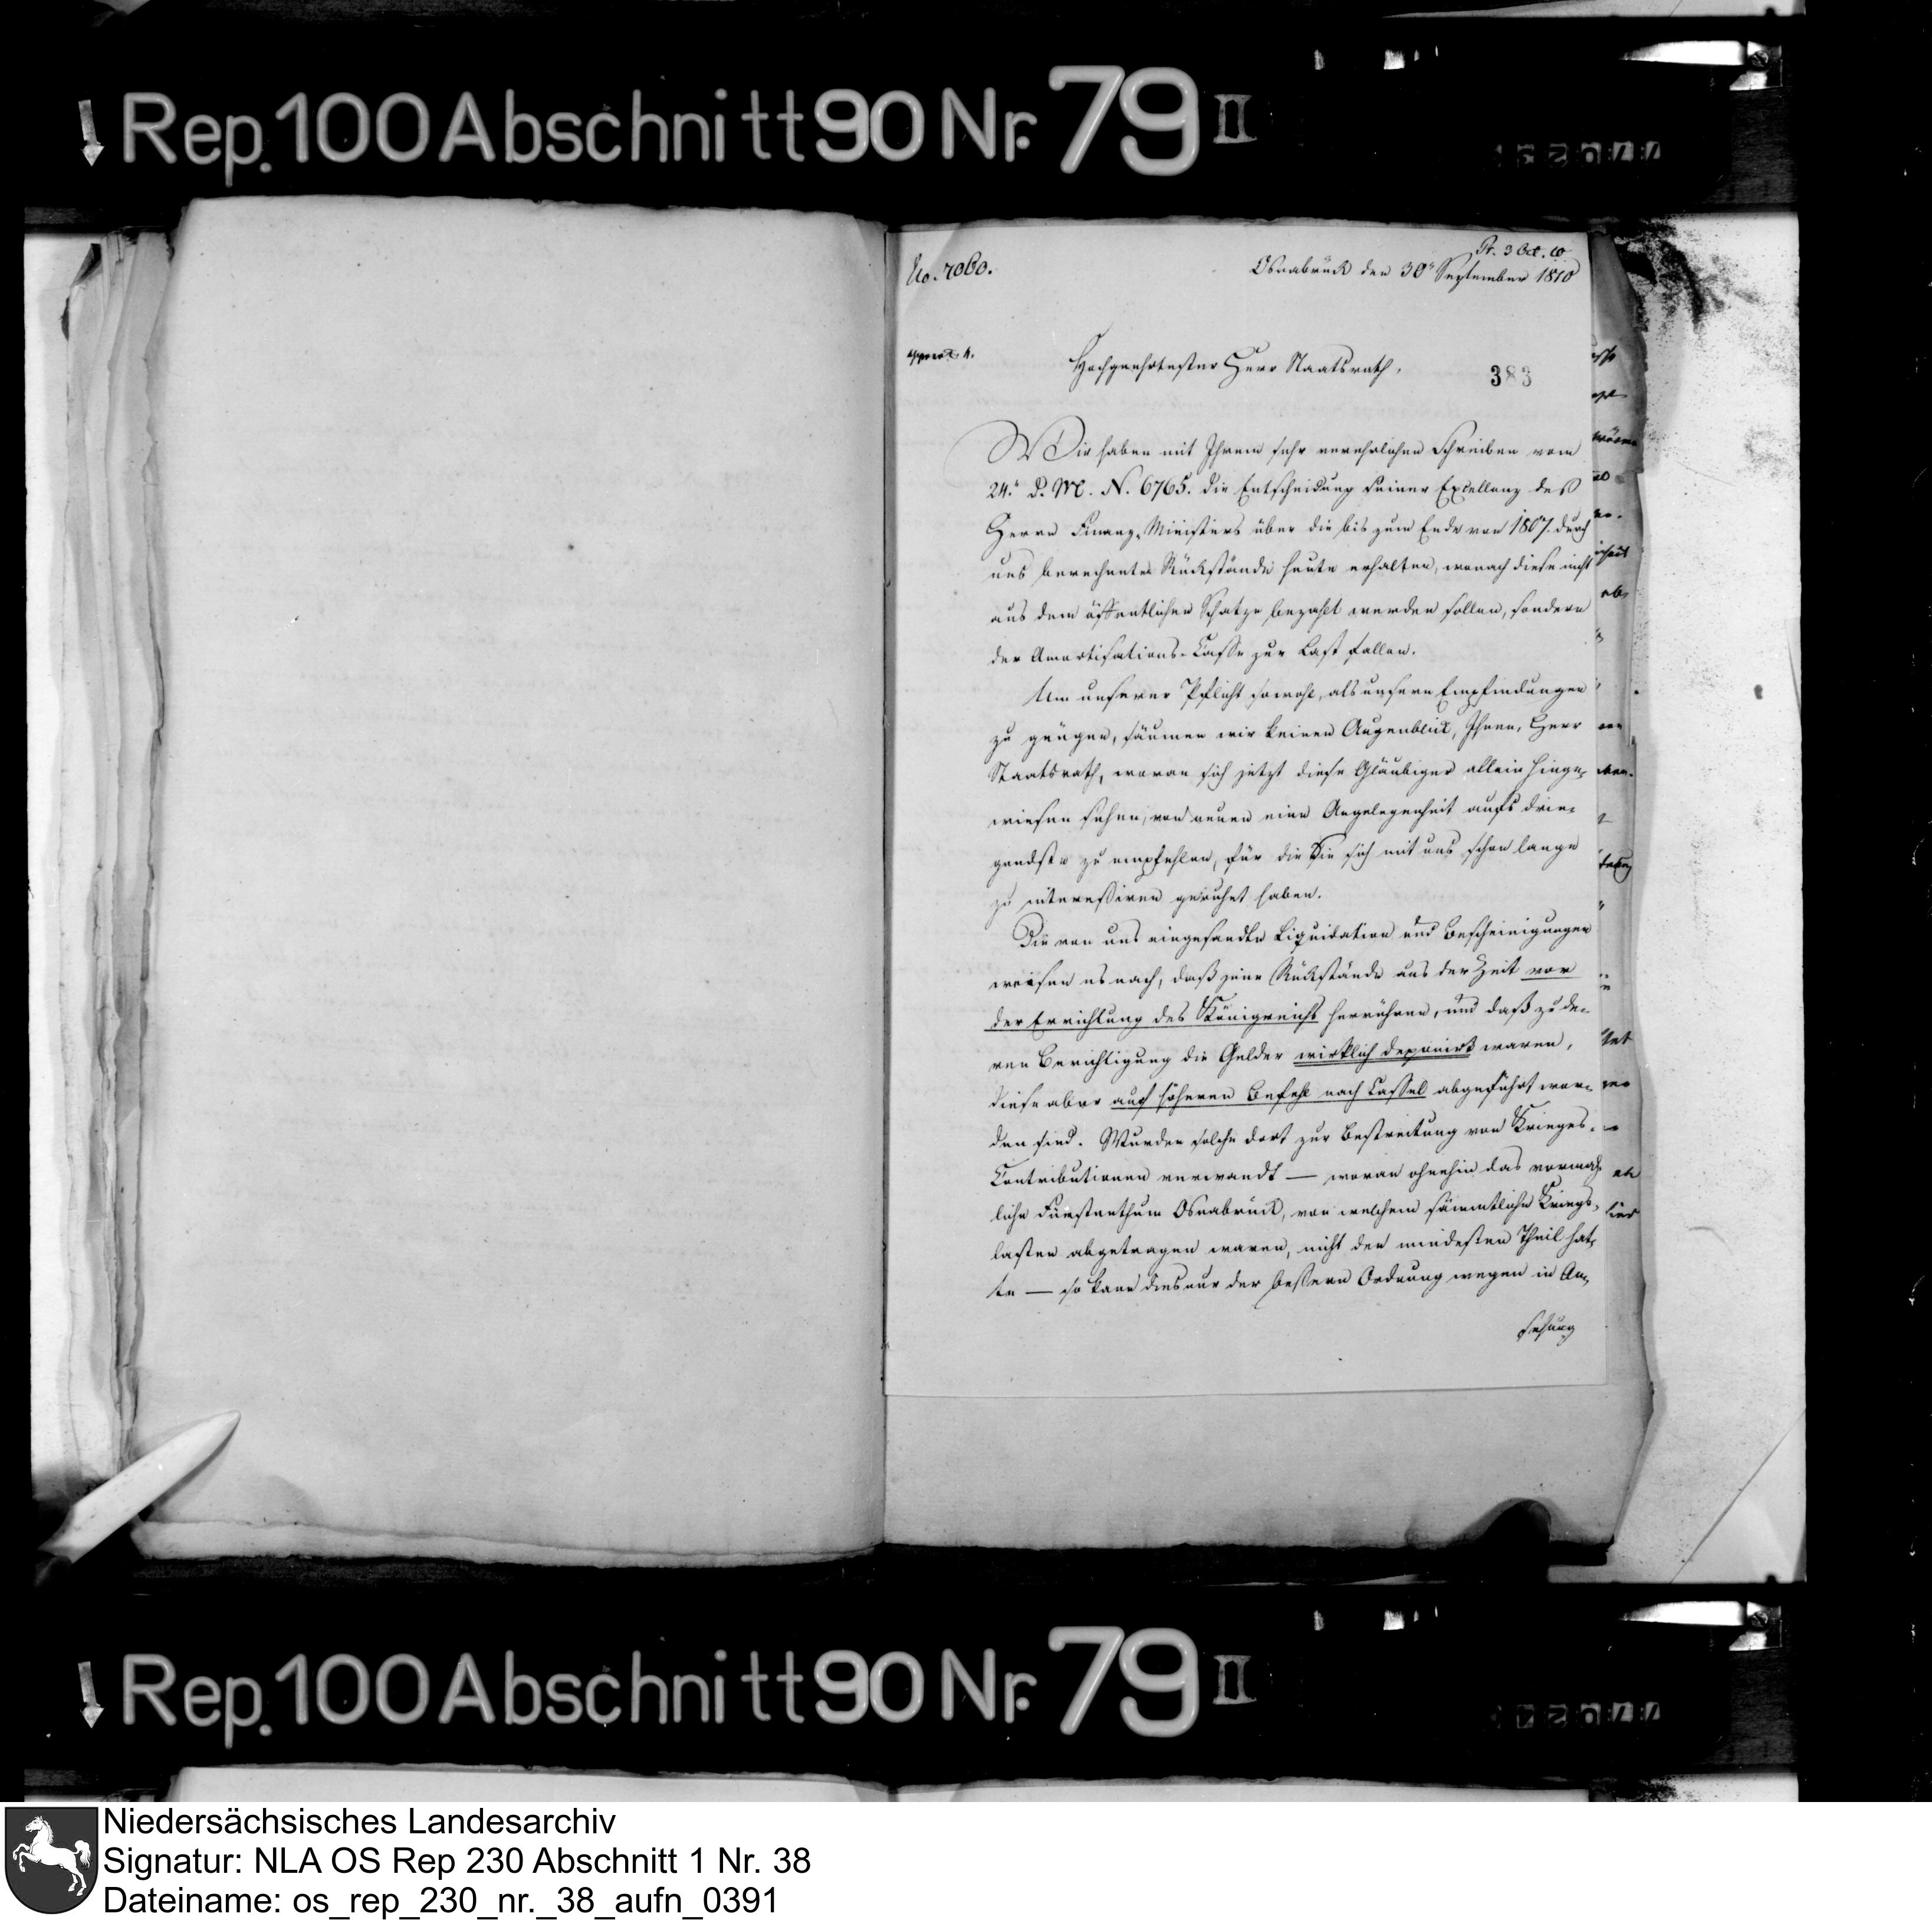 Rep. 100 Abschnitt 90 Nr. 79 II
Pr. 3 Oct. 10
No. 7060.
Osnabrück den 30n September 1810
Hochgeehrtester Herr Staatsrath,
383
Wir haben mit Ihrem sehr verehrlichen Schreiben vom
24.n d. M. N. 6765. die Entscheidung Seiner Excellenz des
Herrn Finanz-Ministers über die bis zum Ende von 1807. durch
uns berechnete Rükstände heute erhalten, wonach diese nicht
aus dem öffentlichen Schatze bezahlt werden sollen, sondern
der Amortisations-Casse zur Last fallen.
Um unserer Pflicht sowohl, als unsern Empfindungen
zu genügen, säumen wir keinen Augenblick, Ihnen, Herr
Staatsrath, woran sich jetzt diese Gläubiger allein hinge-
wiesen sehen, von neuen eine Angelegenheit aufs drin-
gendste zu empfehlen, für die Sie sich mit uns schon lange
zu interessiren geruhet haben.
Die von uns eingesandte Liquidation und Bescheinigungen
weisen es nach, daß jene Rükstände aus der Zeit vor
der Errichtung des Königreichs herrühren, und daß zu de-
ren Berichtigung die Gelder wirklich deponirt waren,
diese aber auf höheren Befehl nach Cassel abgeführt wor-
den sind. Wurden solche dort zur Bestreitung von Krieges-
Contributionen verwandt — woran ohnehin das vormah-
liche Fürstenthum Osnabrück, von welchem sämmtliche Kriegs-
lasten abgetragen waren, nicht den mindesten Theil hat-
te — so kann dies nur der bessern Ordnung wegen in An-
sehung
Rep. 100 Abschnitt 90 Nr. 79 II
Niedersächsisches Landesarchiv
Signatur: NLA OS Rep 230 Abschnitt 1 Nr. 38
Dateiname: os_rep_230_nr._38_aufn_0391